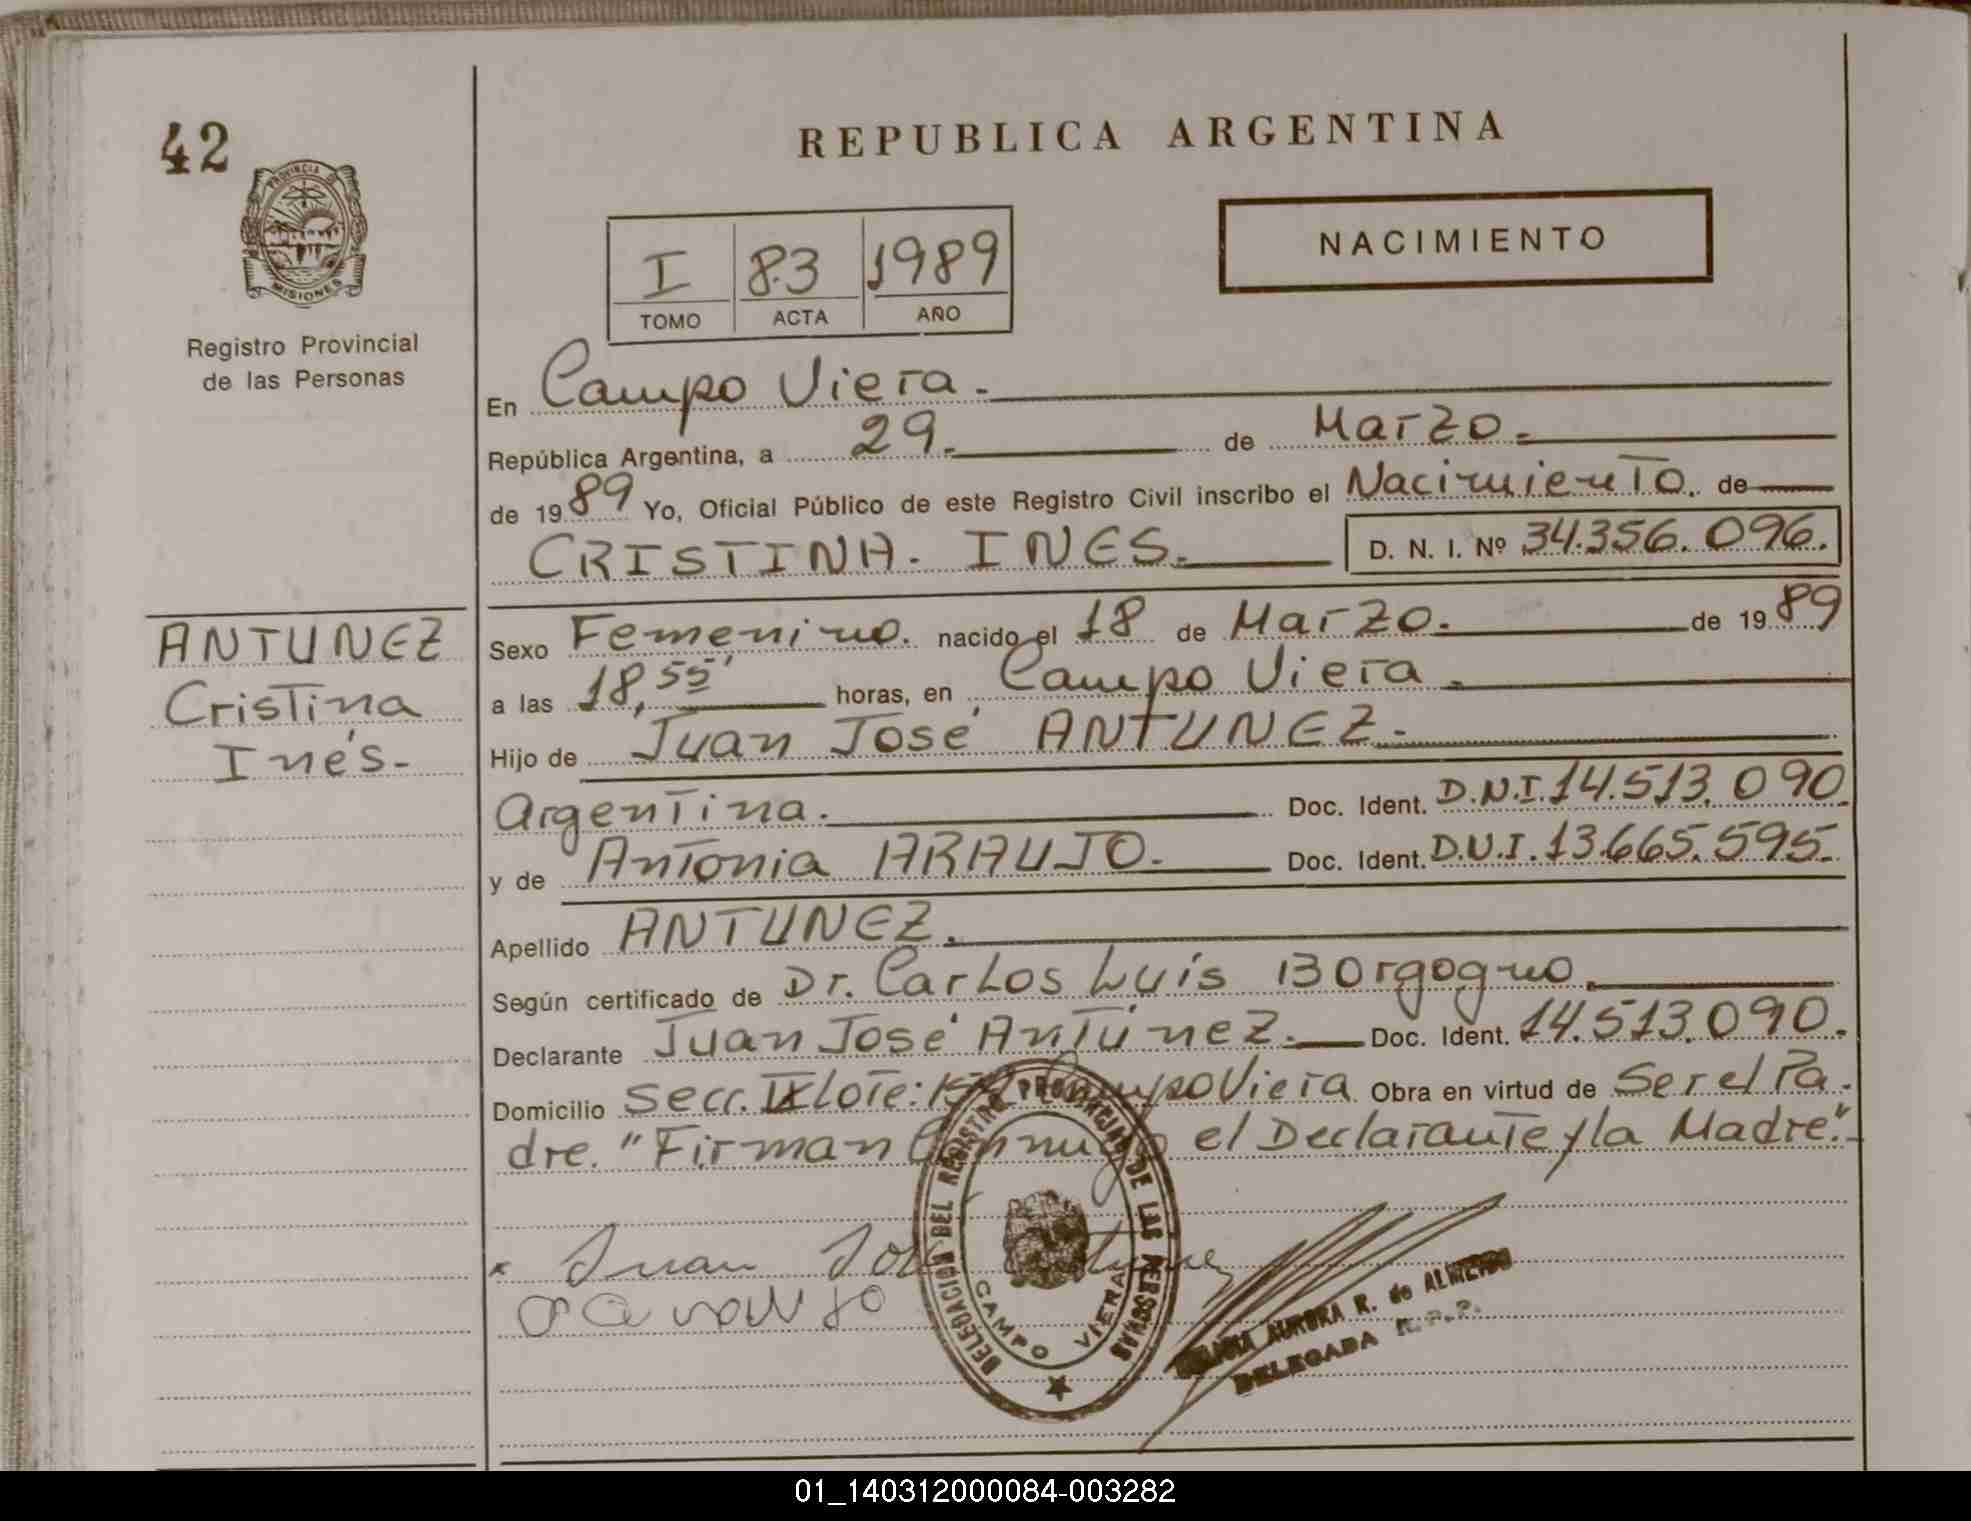 42
REPUBLICA ARGENTINA
PROVINCIA DE
MISIONES
NACIMIENTO
I 83 1989
TOMO ACTA AÑO
Registro Provincial
de las Personas
En Campo Viera.
República Argentina, a 29. de Marzo.
de 1989 Yo, Oficial Público de este Registro Civil inscribo el Nacimiento. de
CRISTINA. INES. D. N. I. Nº 34.356.096.
ANTUNEZ
Cristina
Inés.
Sexo Femenino. nacido el 18 de Marzo. de 1989
a las 18,55' horas, en Campo Viera.
Hijo de Juan José ANTUNEZ.
Argentina. Doc. Ident. D.N.I. 14.513.090.
y de Antonia ARAUJO. Doc. Ident. D.N.I. 13.665.595.
Apellido ANTUNEZ.
Según certificado de Dr. Carlos Luis Borgogno
Declarante Juan José Antúnez. Doc. Ident. 14.513.090.
Domicilio Secc. IX Lote: Campo Viera Obra en virtud de Ser el Pa.
dre. "Firman Conmigo el Declarante y la Madre".
DELEGACION DEL REGISTRO PROVINCIAL DE LAS PERSONAS
CAMPO VIERA
Juan José
AURORA R. de ALMEIDA
DELEGADA R.P.P.
01_140312000084-003282